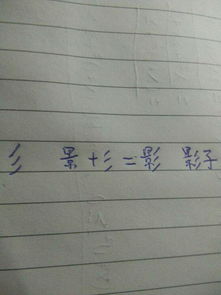 彡 景+彡=影 影子